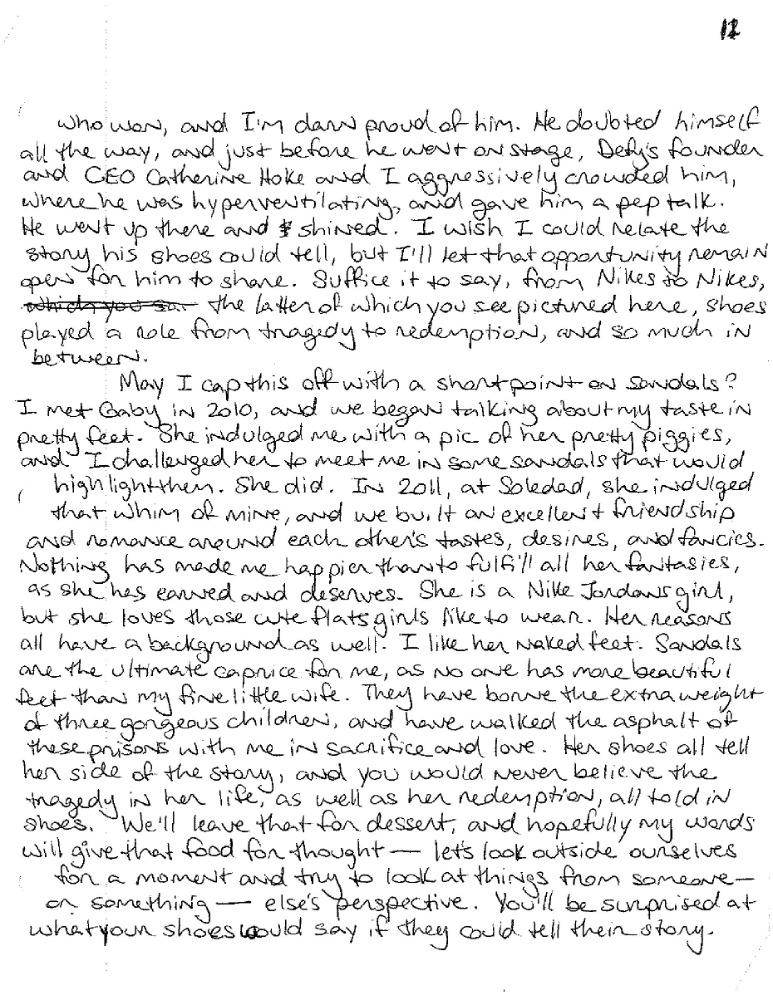 12
who won, and I'm darn proud of him. He doubted himself
all the way, and just before he went on stage, Defy's founder
and CEO Catherine Hoke and I aggressively crowded him,
where he was hyperventilating, and gave him a pep talk.
He went up there and shined. I wish I could relate the
story his shoes could tell, but I'll let that opportunity remain
open for him to share. Suffice it to say, from Nikes to Nikes,
which you sa- the latter of which you see pictured here, shoes
played a role from tragedy to redemption, and so much in
between.
May I cap this off with a short point on sandals?
I met Gaby in 2010, and we began talking about my taste in
pretty feet. She indulged me with a pic of her pretty piggies,
and I challenged her to meet me in some sandals that would
highlight them. She did. In 2011, at Soledad, she indulged
that whim of mine, and we built an excellent friendship
and romance around each other's tastes, desires, and fancies.
Nothing has made me happier than to fulfill all her fantasies,
as she has earned and deserves. She is a Nike Jordans girl,
but she loves those cute flats girls like to wear. Her reasons
all have a background as well. I like her naked feet. Sandals
are the ultimate caprice for me, as no one has more beautiful
feet than my fine little wife. They have borne the extra weight
of three gorgeous children, and have walked the asphalt of
these prisons with me in sacrifice and love. Her shoes all tell
her side of the story, and you would never believe the
tragedy in her life, as well as her redemption, all told in
shoes. We'll leave that for dessert, and hopefully my words
will give that food for thought — let's look outside ourselves
for a moment and try to look at things from someone —
or something — else's perspective. You'll be surprised at
what your shoes would say if they could tell their story.